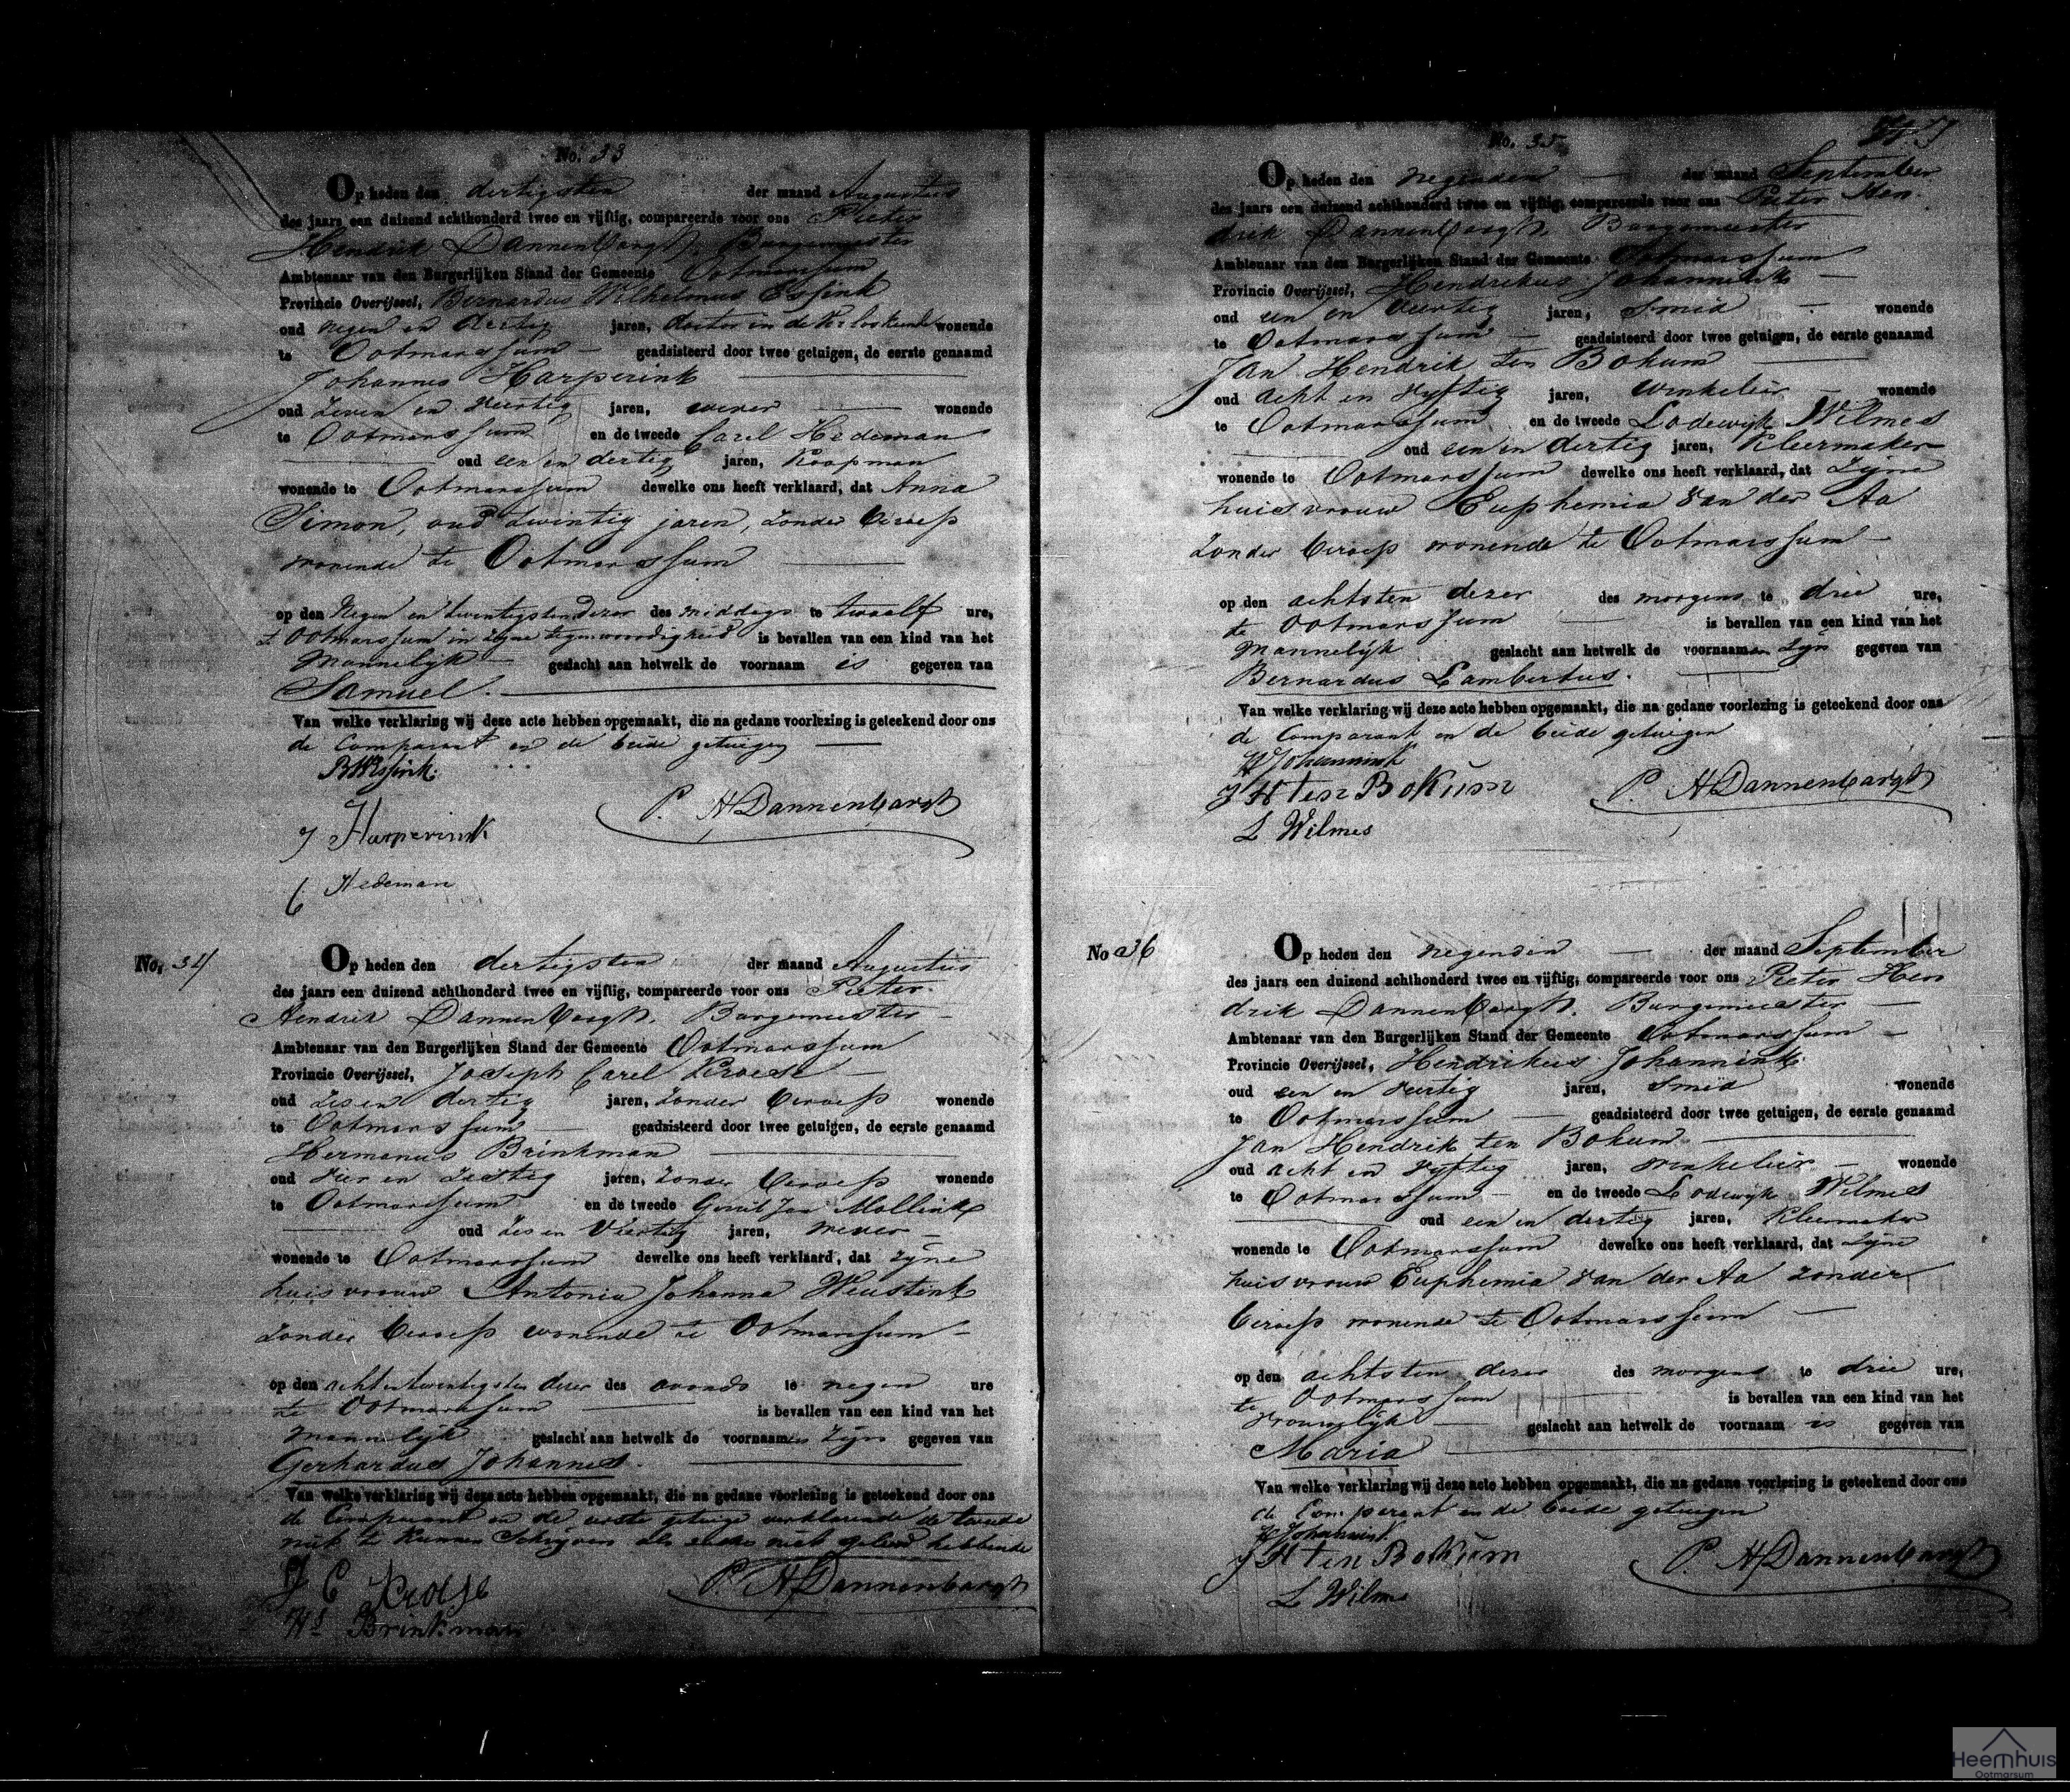 No. 33
Op heden den dertigsten der maand Augustus
des jaars een duizend achthonderd twee en vijftig, compareerde voor ons Pieter
Hendrik Dannenbargh, Burgemeester
Ambtenaar van den Burgerlijken Stand der Gemeente Ootmarssum
Provincie Overijssel, Bernardus Wilhelmus Essink
oud negen en dertig jaren, doctor in de Verloskunde wonende
te Ootmarssum geadsisteerd door twee getuigen, de eerste genaamd
Johannes Harperink
oud zeven en veertig jaren, wever wonende
te Ootmarssum en de tweede Carel Hedeman
oud een en dertig jaren, Koopman
wonende te Ootmarssum dewelke ons heeft verklaard, dat Anna
Simon, oud twintig jaren, zonder beroep
wonende te Ootmarssum
op den negen en twentigsten dezer des middags te twaalf ure,
te Ootmarssum in zijne tegenwoordigheid is bevallen van een kind van het
Mannelijk geslacht aan hetwelk de voornaam is gegeven van
Samuel.
Van welke verklaring wij deze acte hebben opgemaakt, die na gedane voorlezing is geteekend door ons
de Comparant en de beide getuigen
BWEssink
P. H Dannenbargh
J Harperink
C Hedeman
No. 34
Op heden den dertigsten der maand Augustus
des jaars een duizend achthonderd twee en vijftig, compareerde voor ons Pieter
Hendrik Dannenbargh, Burgemeester
Ambtenaar van den Burgerlijken Stand der Gemeente Ootmarssum
Provincie Overijssel, Joseph Carel Kroese
oud zes en dertig jaren, zonder beroep wonende
te Ootmarssum geadsisteerd door twee getuigen, de eerste genaamd
Hermanus Brinkman
oud vier en zestig jaren, zonder beroep wonende
te Ootmarssum en de tweede Gerrit Jan Mollink
oud zes en veertig jaren, wever
wonende te Ootmarssum dewelke ons heeft verklaard, dat zijne
huisvrouw Antonia Johanna Weustink
zonder beroep wonende te Ootmarssum
op den acht en twentigsten dezer des avonds te negen ure
te Ootmarssum is bevallen van een kind van het
Mannelijk geslacht aan hetwelk de voornaamen zijn gegeven van
Gerhardus Johannes.
Van welke verklaring wij deze acte hebben opgemaakt, die na gedane voorlezing is geteekend door ons
de Comparant en de eerste getuige verklarende de tweede
niet te kunnen Schrijven als zulks niet geleerd hebbende
J C Kroese
P. H Dannenbargh
Hs Brinkman
No. 35
Op heden den negenden der maand September
des jaars een duizend achthonderd twee en vijftig, compareerde voor ons Pieter Hen
drik Dannenbargh, Burgemeester
Ambtenaar van den Burgerlijken Stand der Gemeente Ootmarssum
Provincie Overijssel, Hendrikus Johannink
oud een en veertig jaren, Smid wonende
te Ootmarssum geadsisteerd door twee getuigen, de eerste genaamd
Jan Hendrik ten Bokum
oud acht en vyftig jaren, winkelier wonende
te Ootmarssum en de tweede Lodewijk Wilmes
oud een en dertig jaren, Kleermaker
wonende te Ootmarssum dewelke ons heeft verklaard, dat zijne
huisvrouw Euphemia van der Aa
zonder beroep wonende te Ootmarssum
op den achtsten dezer des morgens te drie ure,
te Ootmarssum is bevallen van een kind van het
Mannelijk geslacht aan hetwelk de voornaamen zijn gegeven van
Bernardus Lambertus.
Van welke verklaring wij deze acte hebben opgemaakt, die na gedane voorlezing is geteekend door ons
de Comparant en de beide getuigen
H Johannink
J H ten Bokum
P. H Dannenbargh
L Wilmes
No 36
Op heden den negenden der maand September
des jaars een duizend achthonderd twee en vijftig, compareerde voor ons Pieter Hen
drik Dannenbargh, Burgemeester
Ambtenaar van den Burgerlijken Stand der Gemeente Ootmarssum
Provincie Overijssel, Hendrikus Johannink
oud een en veertig jaren, Smid wonende
te Ootmarssum geadsisteerd door twee getuigen, de eerste genaamd
Jan Hendrik ten Bokum
oud acht en vyftig jaren, winkelier wonende
te Ootmarssum en de tweede Lodewijk Wilmes
oud een en dertig jaren, Kleermaker
wonende te Ootmarssum dewelke ons heeft verklaard, dat zijne
huisvrouw Euphemia van der Aa zonder
beroep wonende te Ootmarssum
op den achtsten dezer des morgens te drie ure,
te Ootmarssum is bevallen van een kind van het
vrouwelijk geslacht aan hetwelk de voornaam is gegeven van
Maria
Van welke verklaring wij deze acte hebben opgemaakt, die na gedane voorlezing is geteekend door ons
de Comparant en de beide getuigen
H Johannink
J H ten Bokum
P. H Dannenbargh
L Wilmes
Heemhuis
Ootmarsum